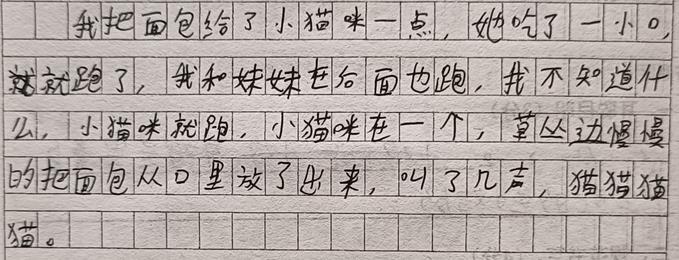 我把面包给了小猫咪一点，她吃了一小口，
就就跑了，我和妹妹在后面也跑，我不知道什
么，小猫咪就跑，小猫咪在一个，草丛边慢慢
的把面包从口里放了出来，叫了几声，猫猫猫
猫。